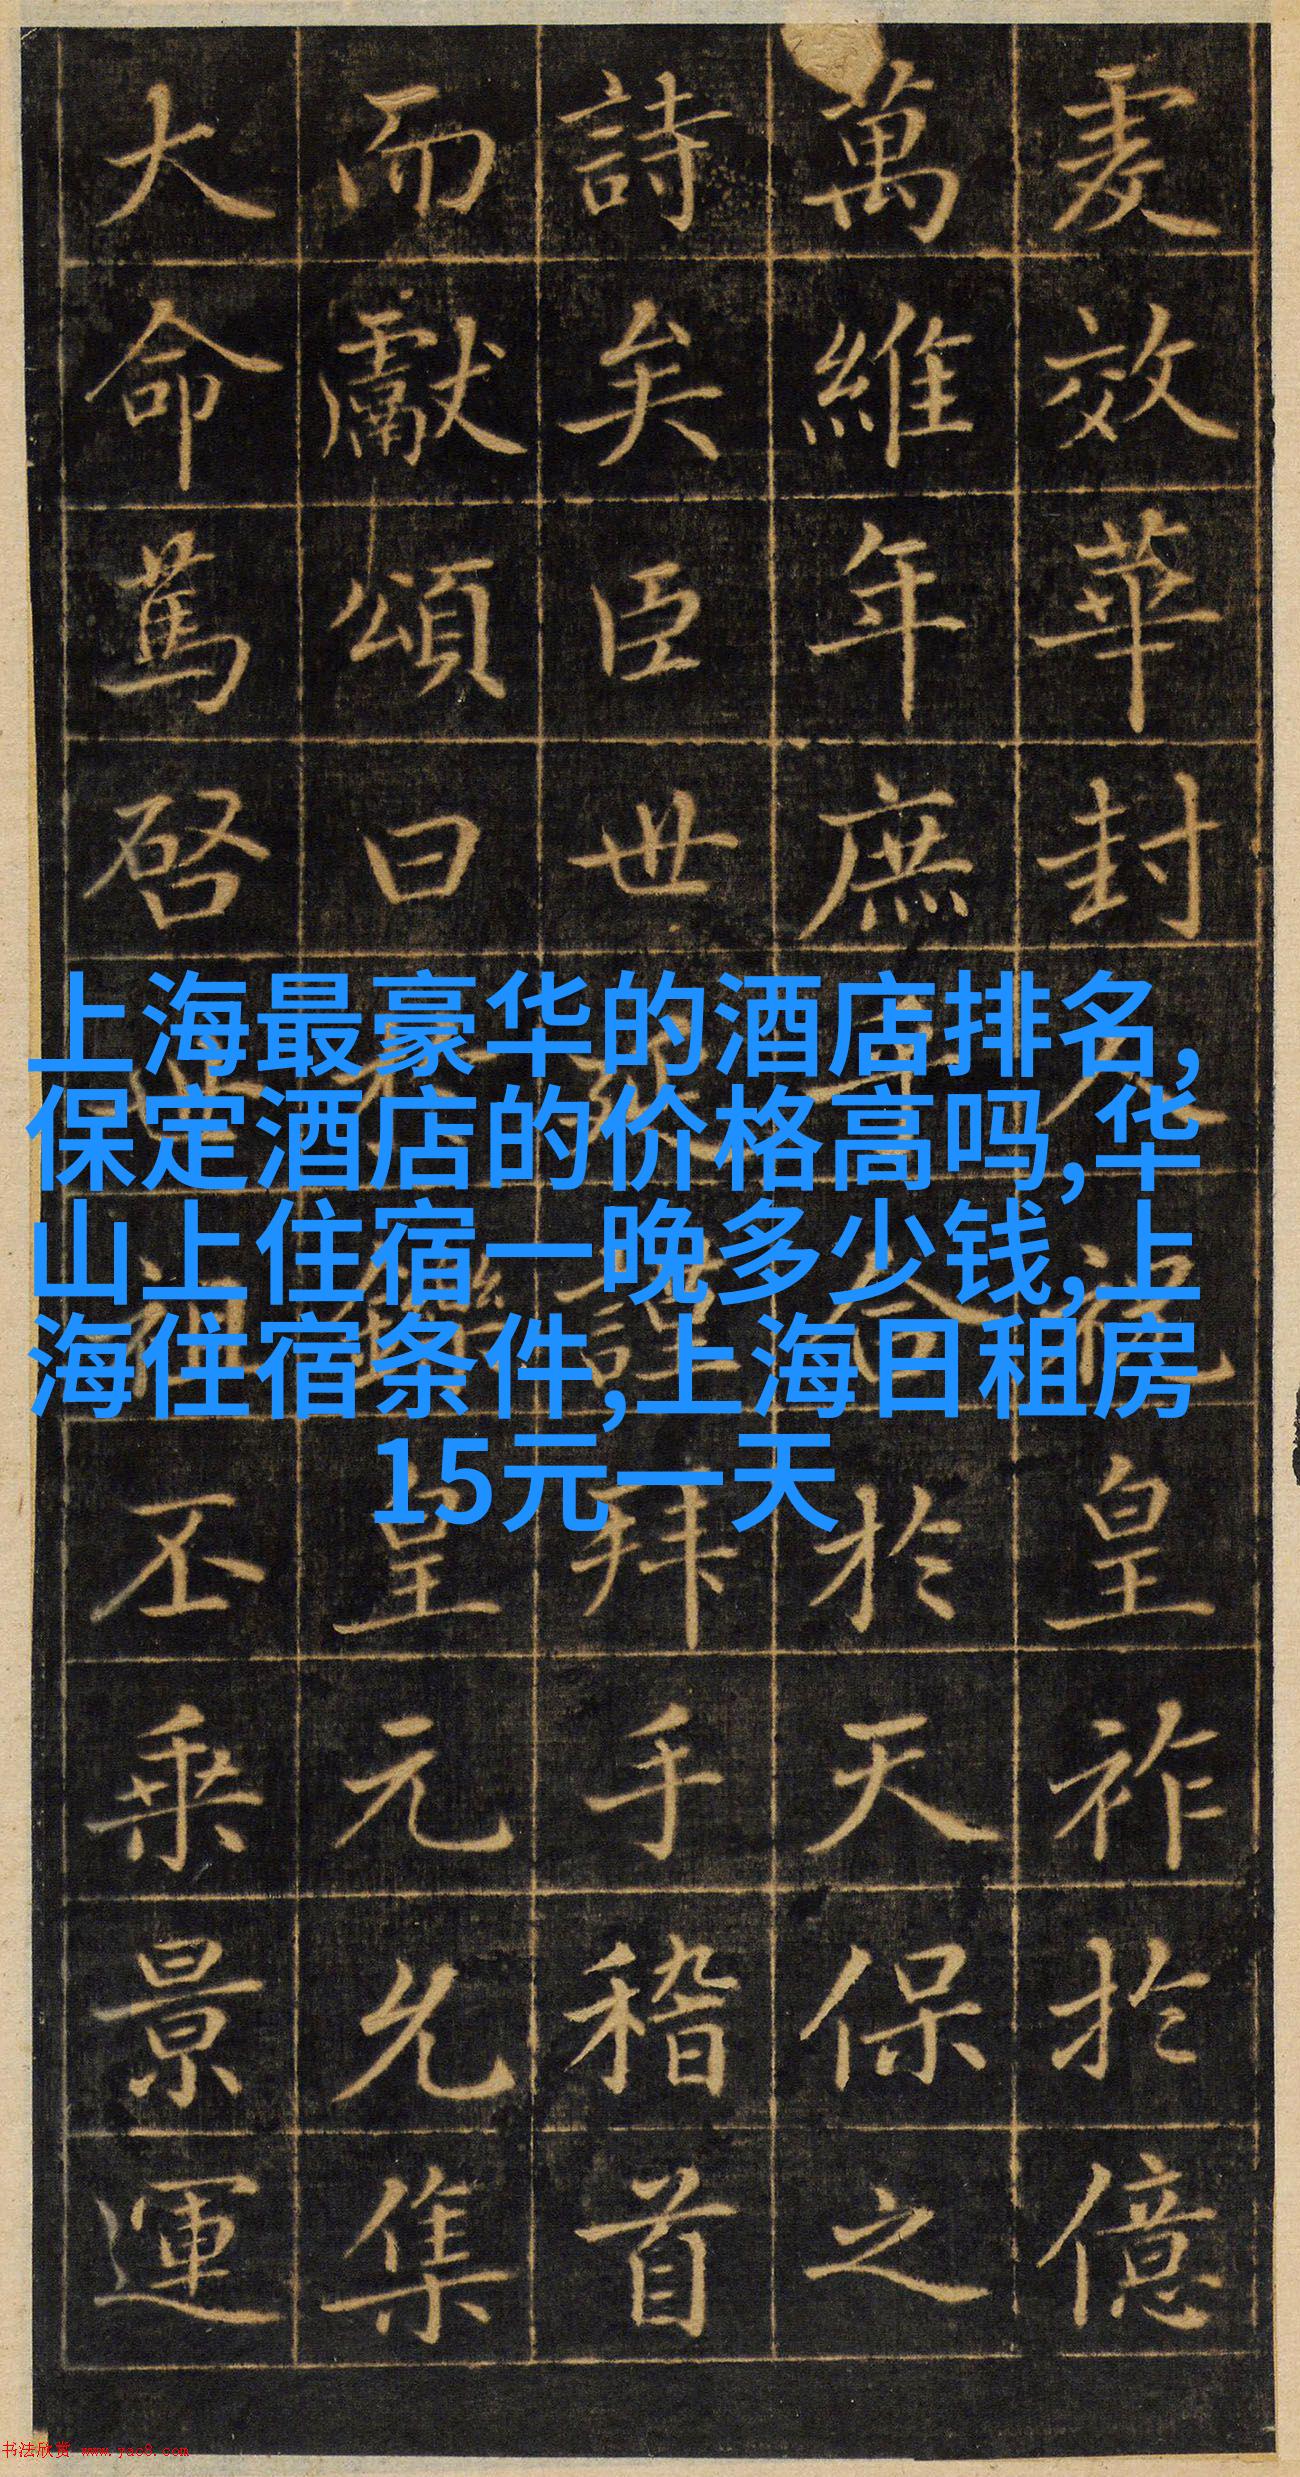 爰效華封人祝皇祚於億
萬維年庶合於天保之
詩矣臣世謹拜手稽首
而獻頌曰皇元允集
大命篤啓祖丕乘景運
上海最豪华的酒店排名,
保定酒店的价格高吗,华
山上住宿一晚多少钱,上
海住宿条件,上海日租房
15元一天
书法欣赏 www.yac8.com